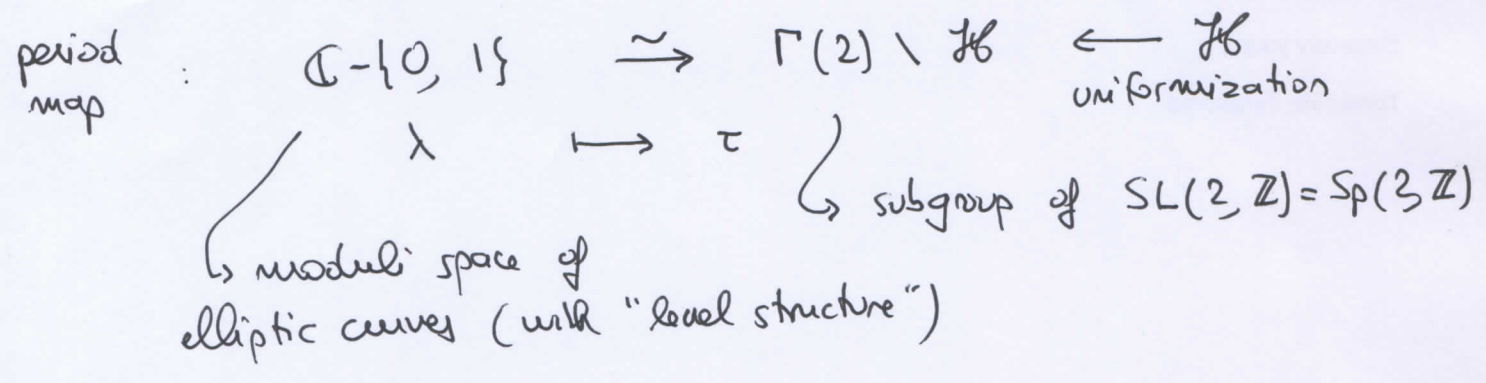 period map : ℂ-{0, 1} ⥲ Γ(2) \ ℋ ⟵ ℋ
uniformization
λ ⟼ τ
↳ subgroup of SL(2, ℤ) = Sp(2, ℤ)
↳ moduli space of
elliptic curves (with "level structure")